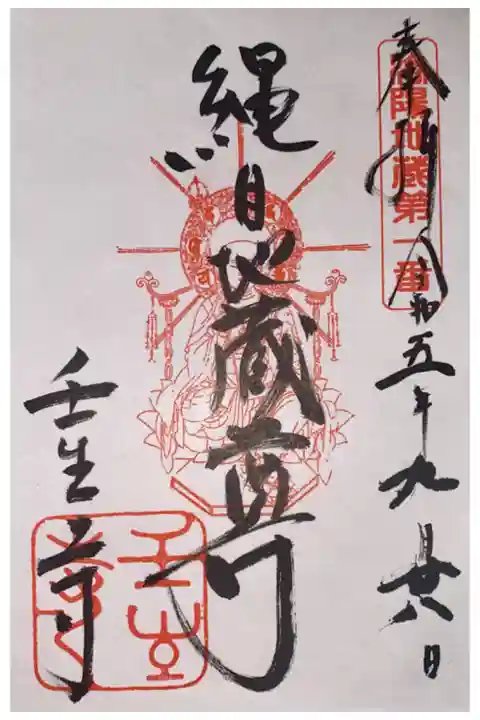 奉拝 令和五年九月廿八日
洛陽地蔵第一番
縄目地蔵尊
壬生寺